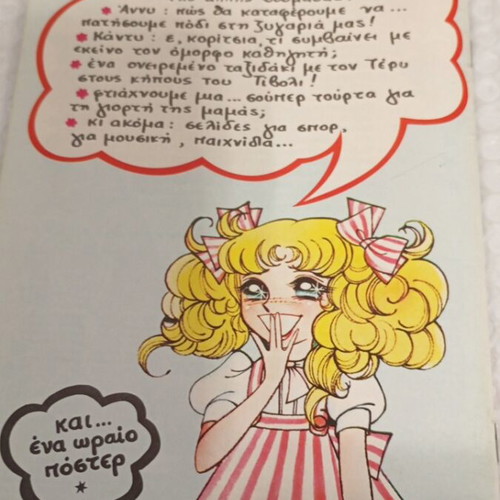 * Άννυ : πώς θα καταφέρουμε να...
πατήσουμε πόδι στη ζυγαριά μας!
* Κάντυ : ε, κορίτσια, τι συμβαίνει με
εκείνο τον όμορφο καθηγητή;
* ένα ονειρεμένο ταξιδάκι με τον Τέρυ
στους κήπους του Τίβολι!
* φτιάχνουμε μια... σούπερ τούρτα για
τη γιορτή της μαμάς;
* κι ακόμα : σελίδες για σπορ,
για μουσική, παιχνίδια...
και...
ένα ωραίο
πόστερ
*